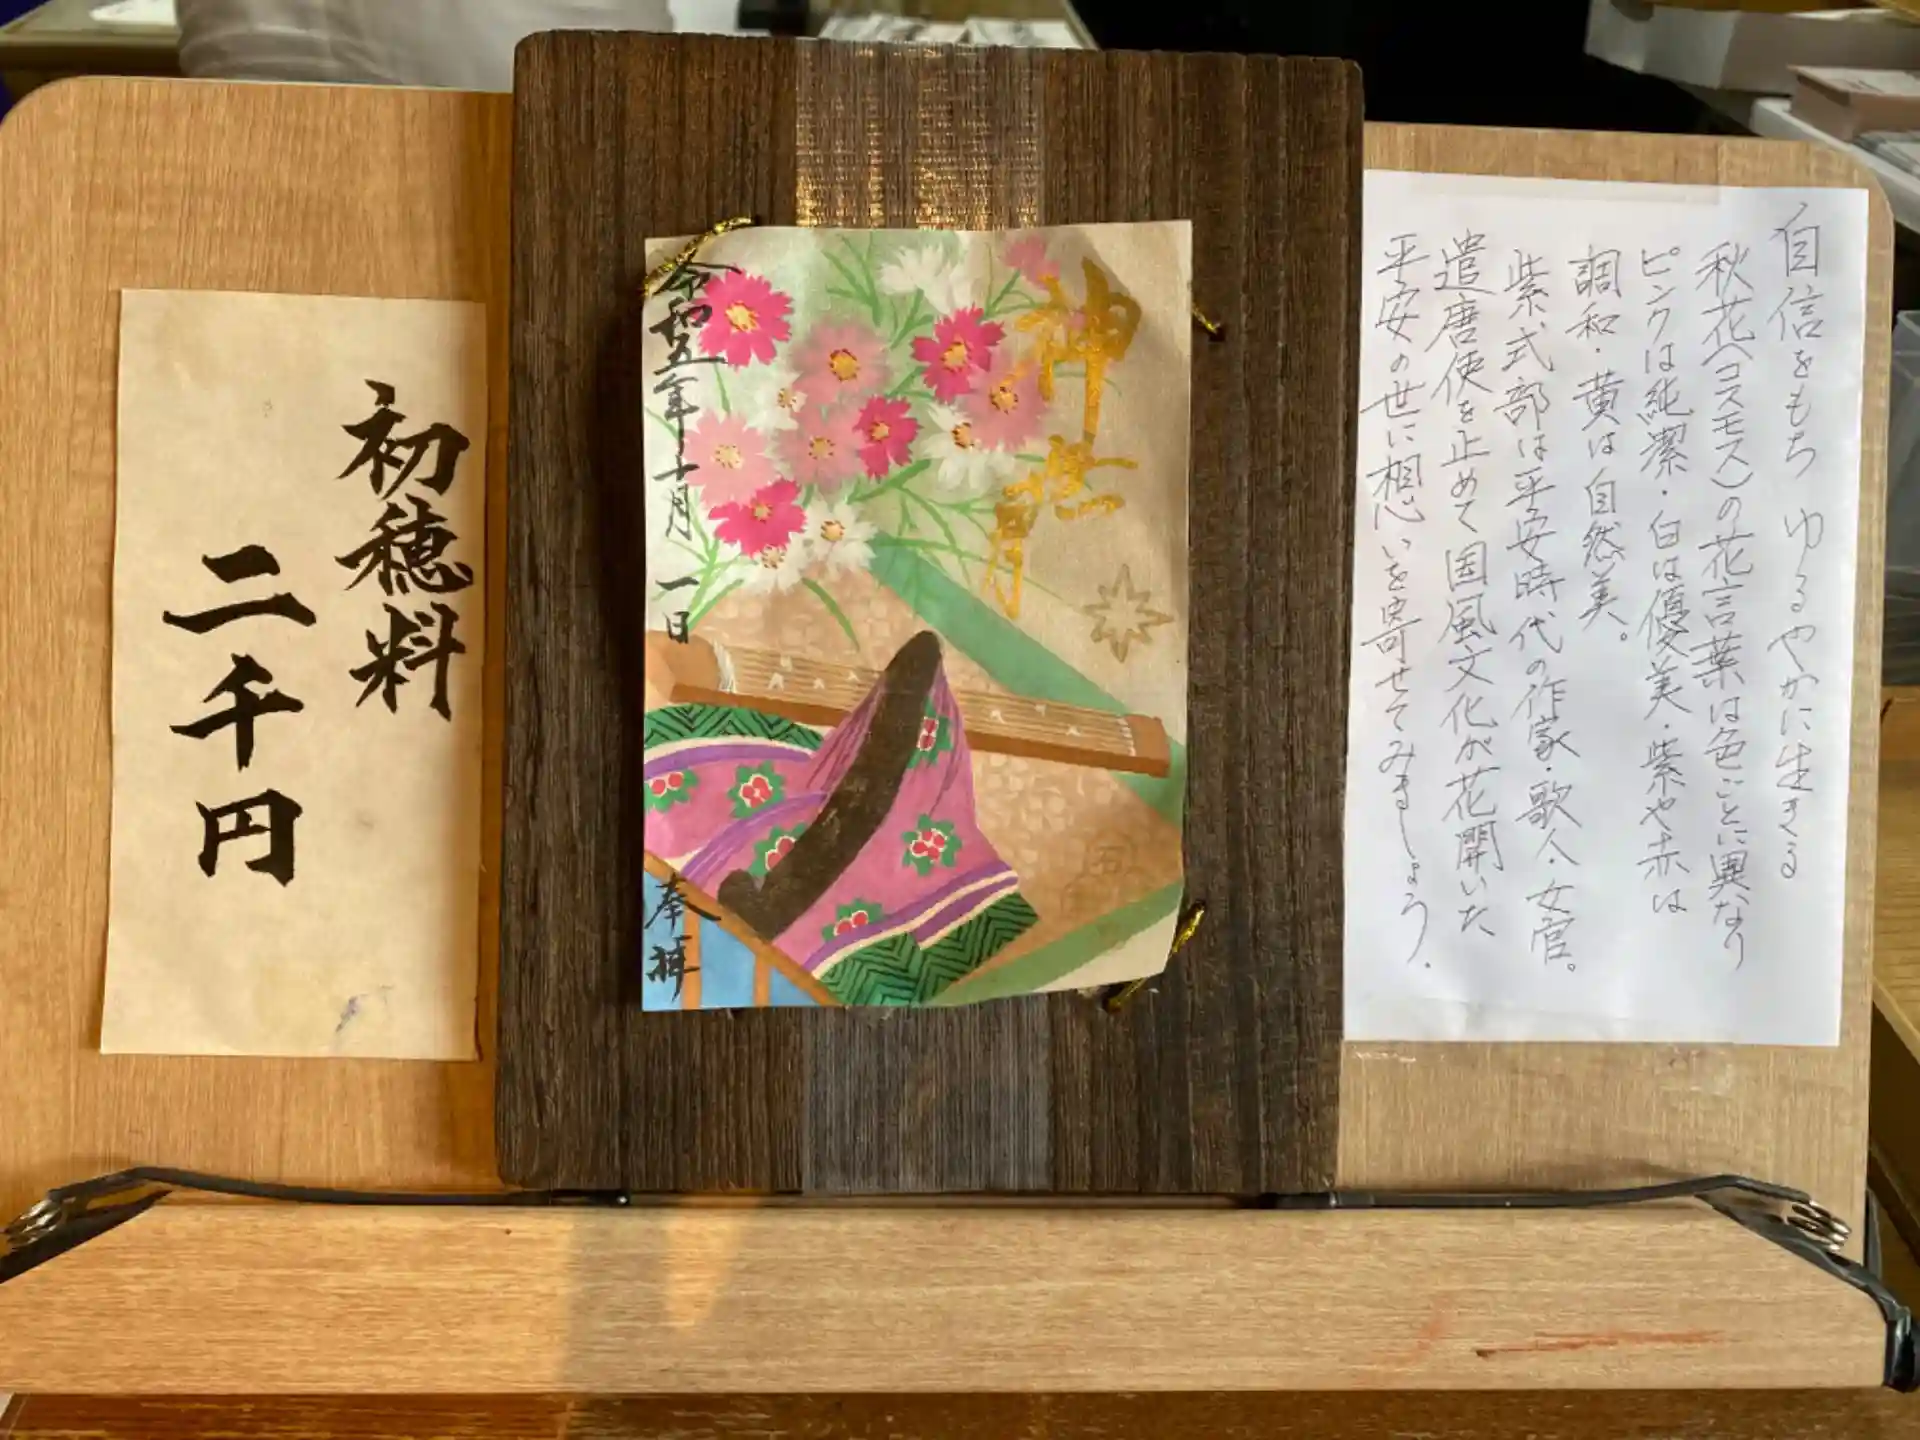 自信をもち ゆるやかに生きる
秋花(コスモス)の花言葉は色ごとに異なり
ピンクは純潔・白は優美・紫や赤は
調和・黄は自然美。
紫式部は平安時代の作家・歌人・女官。
遣唐使を止めて国風文化が花開いた
平安の世に想いを寄せてみましょう.
神無月
令和五年十月 一日
奉拝
初穂料
二千円